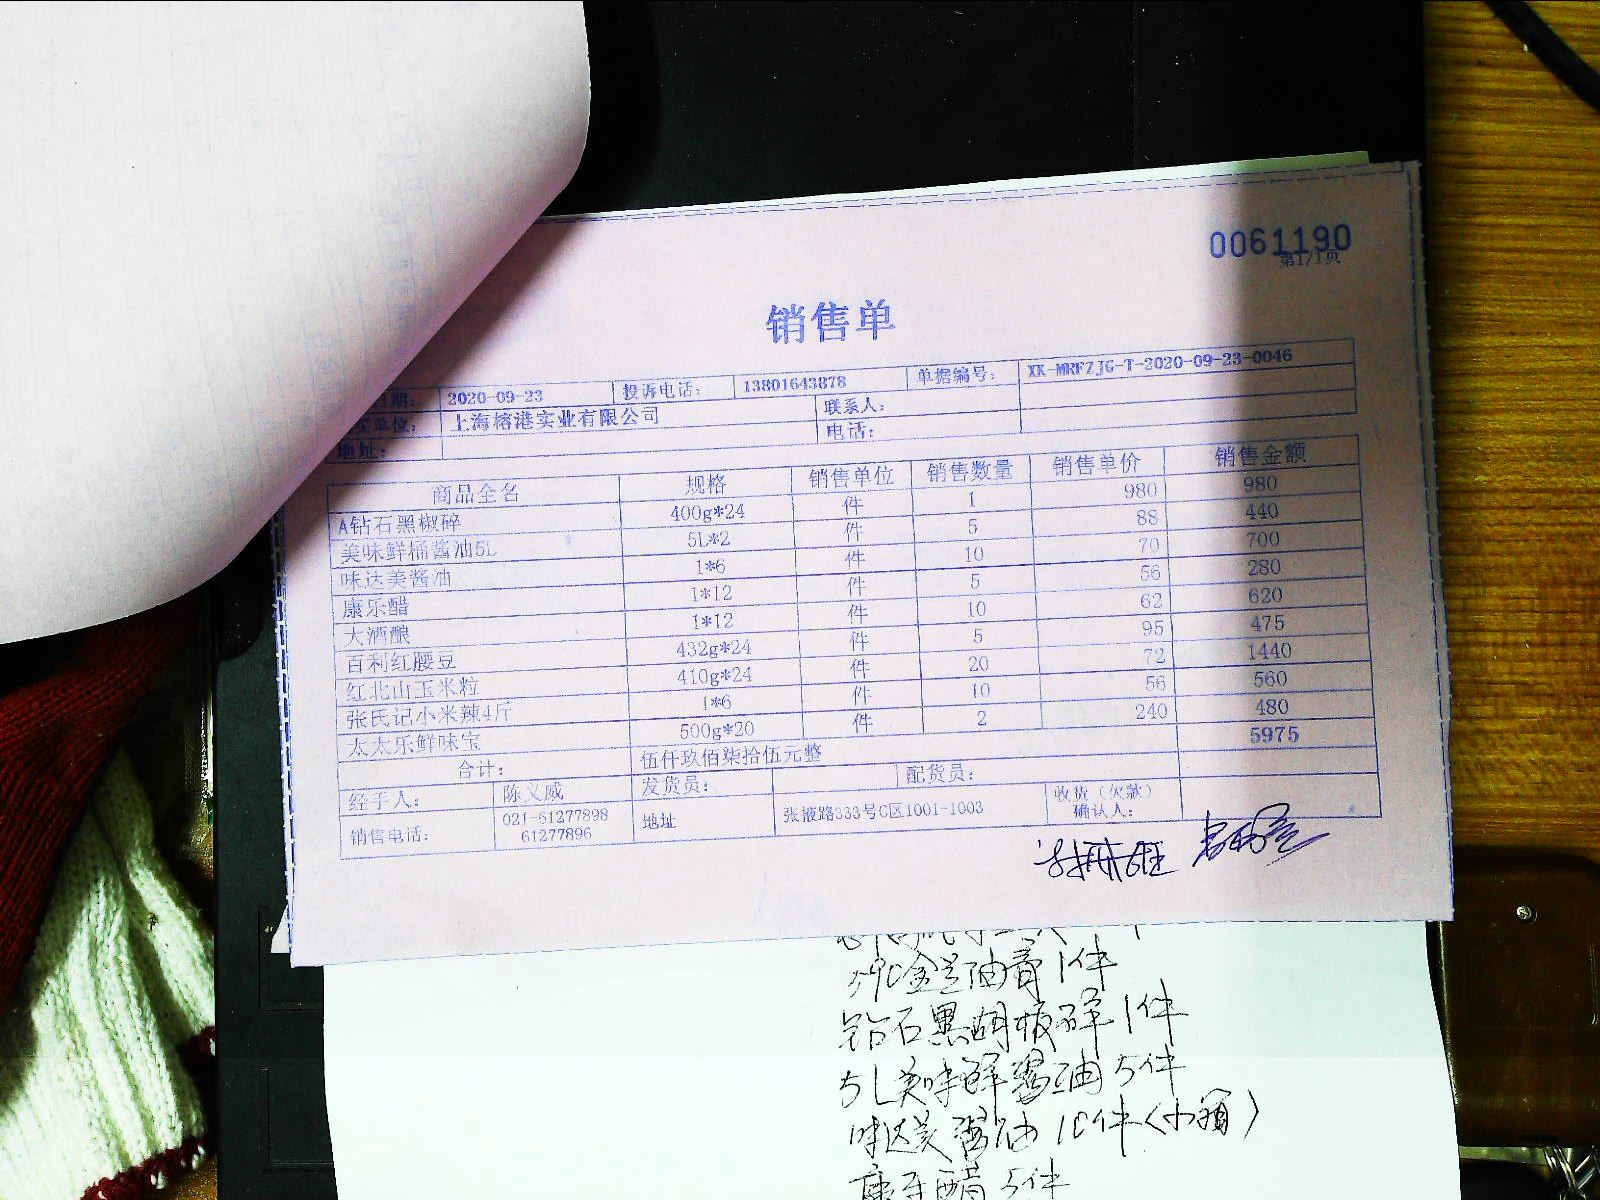 0061190
第1/1页
销售单
日期： 2020-09-23 投诉电话： 13801643878 单据编号： XK-MRFZJG-T-2020-09-23-0046
单位： 上海榕港实业有限公司 联系人：
地址： 电话：
商品全名 规格 销售单位 销售数量 销售单价 销售金额
A钻石黑椒碎 400g*24 件 1 980 980
美味鲜桶酱油5L 5L*2 件 5 88 440
味达美酱油 1*6 件 10 70 700
康乐醋 1*12 件 5 56 280
大酒酿 1*12 件 10 62 620
百利红腰豆 432g*24 件 5 95 475
红北山玉米粒 410g*24 件 20 72 1440
张氏记小米辣4斤 1*6 件 10 56 560
太太乐鲜味宝 500g*20 件 2 240 480
合计： 伍仟玖佰柒拾伍元整 5975
经手人： 陈义威 发货员： 配货员：
销售电话： 021-61277898 61277896 地址 张掖路333号C区1001-1003 收货（欠款）确认人：
金兰油膏1件
钻石黑胡椒碎1件
5L美味鲜酱油5件
味达美酱油10件(小瓶)
康乐醋5件